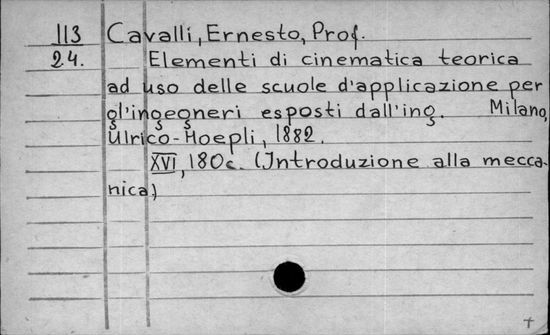 113 Cavalli, Ernesto, Prof.
24. Elementi di cinematica teorica
ad uso delle scuole d'applicazione per
gl'ingegneri esposti dall'ing. Milano,
Ulrico-Hoepli, 1882.
XVI, 180c. (Introduzione alla mecca-
nica)
+